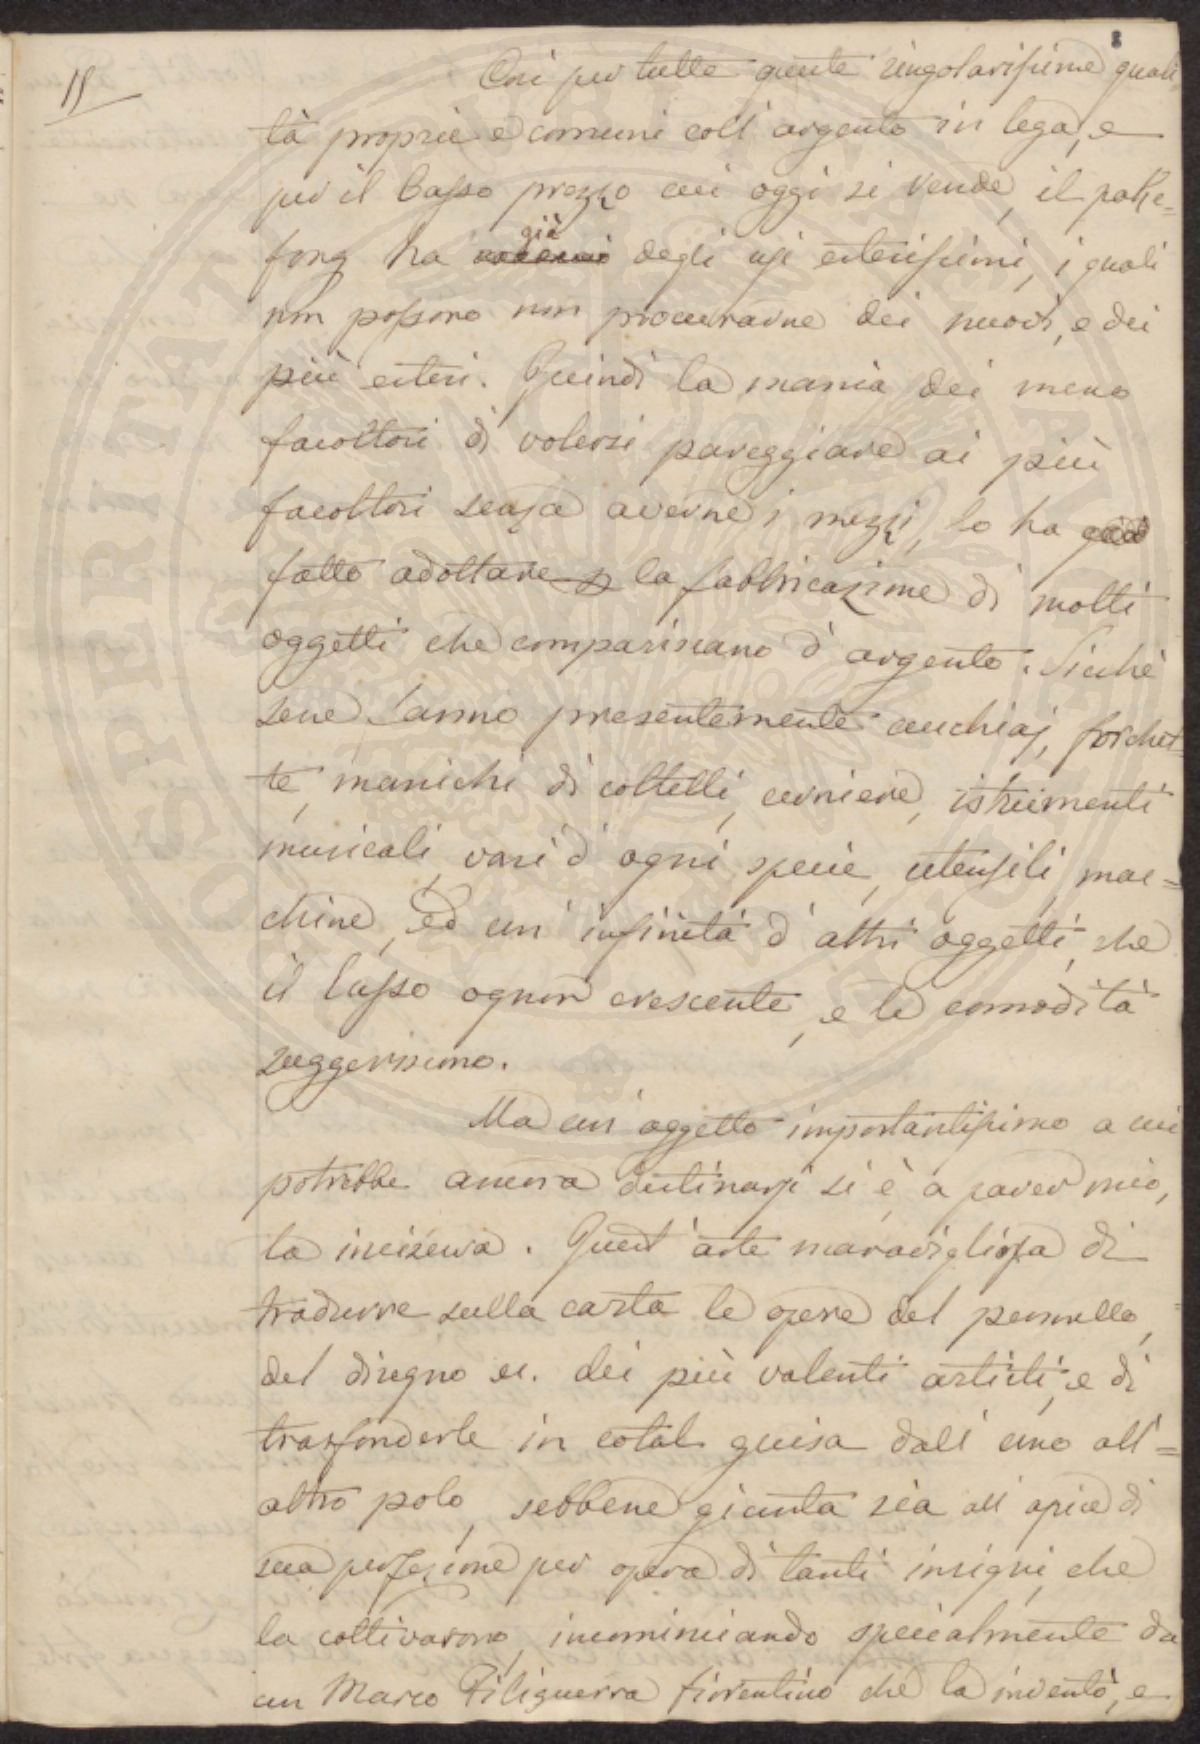 8
15
Così per tutte queste singolarissime quali
tà proprie e comuni coll' argento in lega, e
per il basso prezzo cui oggi si vende, il pakc=
fong ha già degli usi estesissimi, i quali
non possono non procurarne dei nuovi, e dei
più estesi. Quindi la mania dei meno
facoltosi di volersi pareggiare ai più
facoltosi senza averne i mezzi, lo ha già
fatto adottare la fabbricazione di molti
oggetti che compariscano d' argento. Sicchè
sene fanno presentemente cucchiaj, forchet
te, manichi di coltelli, cerniere, istrumenti
musicali, vasi d' ogni specie, utensili, mac=
chine, ed un' infinità d' altri oggetti, che
il lusso ognor crescente, e le comodità
suggeriscono.
Ma un' oggetto importantissimo a cui
potrebbe ancora destinarsi si è, a parer mio,
la incisione. Quest' arte maravigliosa di
tradurre sulla carta le opere del pennello,
del disegno ec. dei più valenti artisti, e di
trasfonderle in cotal guisa dall' uno all'=
altro polo, sebbene giunta sia all' apice di
sua perfezione per opera di tanti insigni, che
la coltivarono, incominciando specialmente da
un Marco Filiguerra fiorentino che la inventò, e